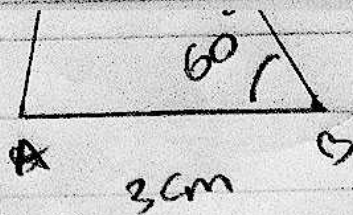 60°
A B
3cm